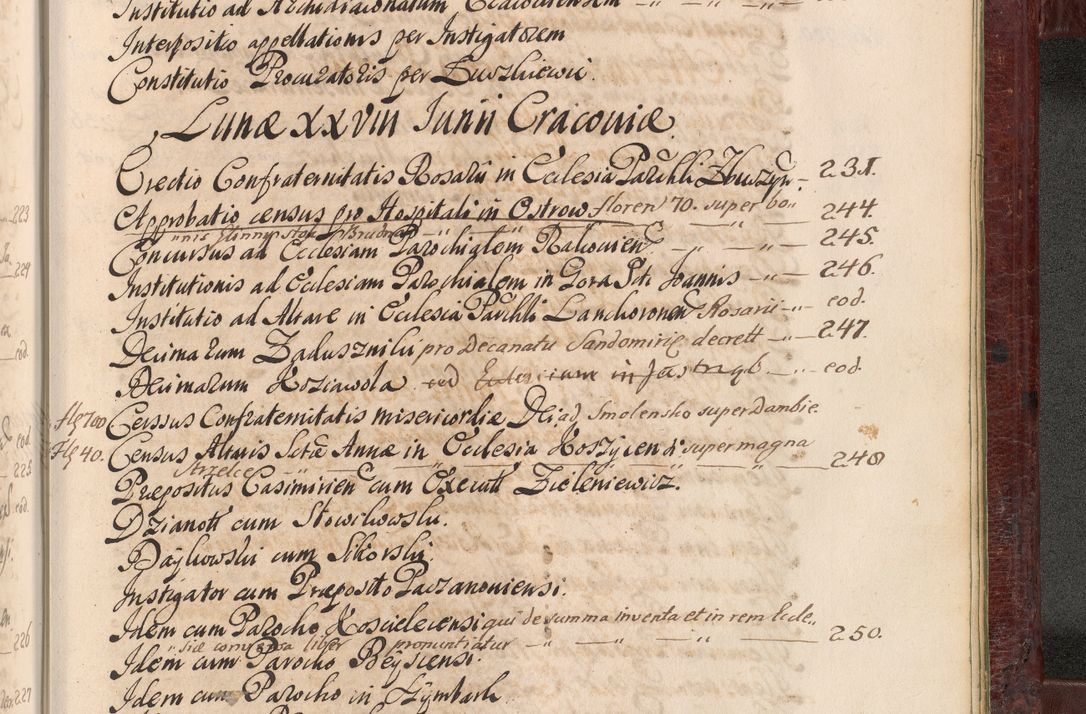 Institutio ad Archidiaconatum Cracoviensem — " — " — " —
Interpositio appellationis per Instigatorem
Constitutio Procuratoris per Luszkiewic.
Lunæ XXVIII Junii Cracoviæ.
Erectio Confraternitatis Rosarii in Ecclesia Parchli 231.
Approbatio census pro Hospitali in Ostrow floren 70. super bo„ 244.
„nis
Concursus ad Ecclesiam Parochialem Rakovien — " — " — 245.
Institutionis ad Ecclesiam Parochialem in Gora Sti Joannis — " — 246.
Institutio ad Altare in Ecclesia Parchli Lanckoronen Rosarii — " — eod.
Decimarum Zaduszniki pro Decanatu Sandomiriæ decrett — " — 247.
Decimarum — " — eod.
flo 700 Census Confraternitatis misericordiæ Dei ad Smolensko super dambie.
Flo 40. Census Altaris Sctæ Annæ in Ecclesia Koszycen super magna
Strzelce — " — " — " — " — 248
Præpositus Casimirien cum Execut Zieleniewicz.
Dzianott cum Stowikowski.
Baykowski cum Sikorski.
Instigator cum Præposito Paczanoviensi.
Idem cum Parocho Koscielecensi qui de summa inventa et in rem Eccle„
„siæ conversa liber pronuntiatur — " — " — " — 250.
Idem cum Parocho Beysciensi.
Idem cum Parocho in Hymbark
223
224
eod.
eod.
225
eod.
226
227